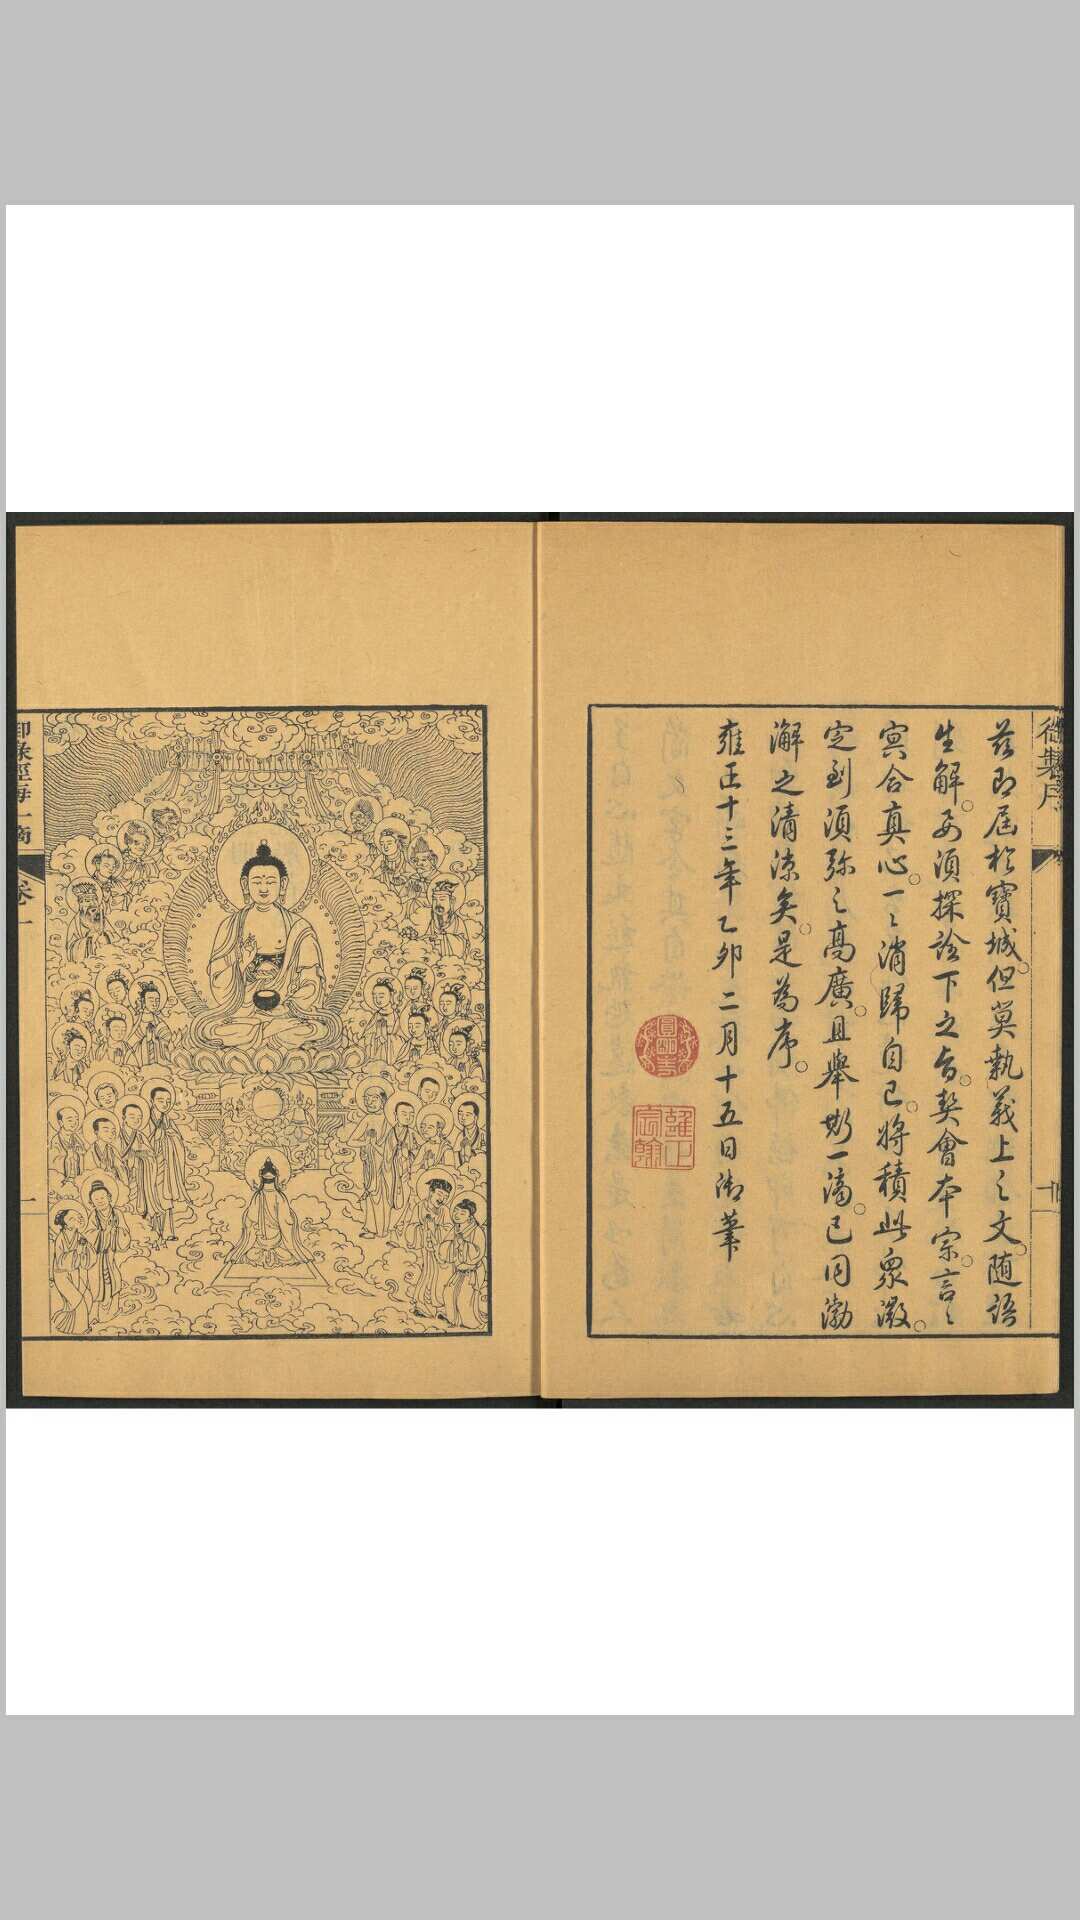 御製序
茲即屆於寶城。但莫執義上之文。隨語
生解。要須探詮下之旨。契會本宗。言〻
冥合真心。一〻消歸自己。將積此眾瀲。
定到須弥之高廣。且舉斯一滴。已同渤
澥之清涼矣。是為序。
雍正十三年乙卯二月十五日御筆
圓明主人
雍正宸翰
御錄經海一滴
卷一
一